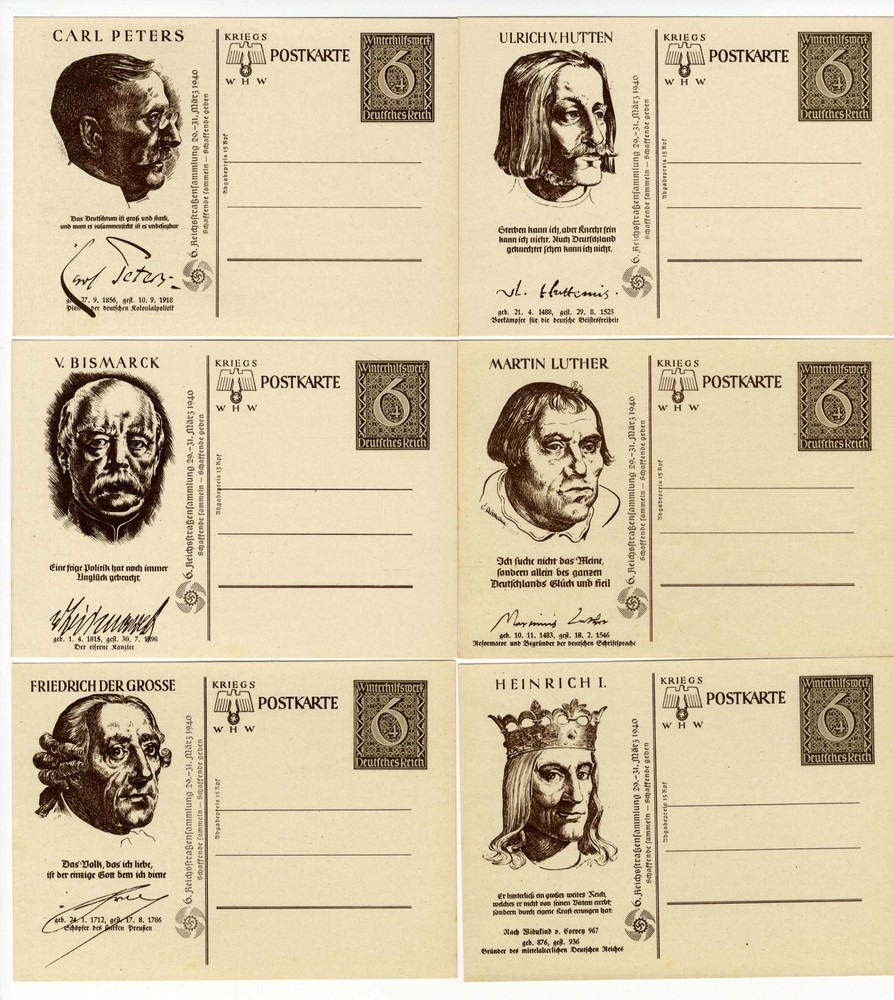 CARL PETERS
Das Deutschtum ist groß und stark,
und wenn es zusammensteht ist es unbesiegbar
Carl Peters
geb. 27. 9. 1856, gest. 10. 9. 1918
Pionier der deutschen Kolonialpolitik
6. Reichsstraßensammlung 29.–31. März 1940
Schaffende sammeln – Schaffende geben
KRIEGS
WHW
POSTKARTE
Winterhilfswerk
6
+4
Deutsches Reich
Abgabepreis 15 Rpf
ULRICH V. HUTTEN
Sterben kann ich, aber Knecht sein
kann ich nicht. Auch Deutschland
geknechtet sehen kann ich nicht.
geb. 21. 4. 1488, gest. 29. 8. 1523
Vorkämpfer für die deutsche Geistesfreiheit
6. Reichsstraßensammlung 29.–31. März 1940
Schaffende sammeln – Schaffende geben
KRIEGS
WHW
POSTKARTE
Winterhilfswerk
6
+4
Deutsches Reich
Abgabepreis 15 Rpf
V. BISMARCK
Eine feige Politik hat noch immer
Unglück gebracht.
v Bismarck
geb. 1. 4. 1815, gest. 30. 7. 1898
Der eiserne Kanzler
6. Reichsstraßensammlung 29.–31. März 1940
Schaffende sammeln – Schaffende geben
KRIEGS
WHW
POSTKARTE
Winterhilfswerk
6
+4
Deutsches Reich
Abgabepreis 15 Rpf
MARTIN LUTHER
Ich suche nicht das Meine,
sondern allein des ganzen
Deutschlands Glück und Heil
Martinus Luther
geb. 10. 11. 1483, gest. 18. 2. 1546
Reformator und Begründer der deutschen Schriftsprache
6. Reichsstraßensammlung 29.–31. März 1940
Schaffende sammeln – Schaffende geben
KRIEGS
WHW
POSTKARTE
Winterhilfswerk
6
+4
Deutsches Reich
Abgabepreis 15 Rpf
FRIEDRICH DER GROSSE
Das Volk, das ich liebe,
ist der einzige Gott dem ich diene
geb. 24. 1. 1712, gest. 17. 8. 1786
Schöpfer des starken Preußen
6. Reichsstraßensammlung 29.–31. März 1940
Schaffende sammeln – Schaffende geben
KRIEGS
WHW
POSTKARTE
Winterhilfswerk
6
+4
Deutsches Reich
Abgabepreis 15 Rpf
HEINRICH I.
Er hinterließ ein großes weites Reich,
welches er nicht von seinen Vätern ererbt,
sondern durch eigene Kraft errungen hat.
Nach Widukind v. Corvey 967
geb. 876, gest. 936
Gründer des mittelalterlichen Deutschen Reiches
6. Reichsstraßensammlung 29.–31. März 1940
Schaffende sammeln – Schaffende geben
KRIEGS
WHW
POSTKARTE
Winterhilfswerk
6
+4
Deutsches Reich
Abgabepreis 15 Rpf